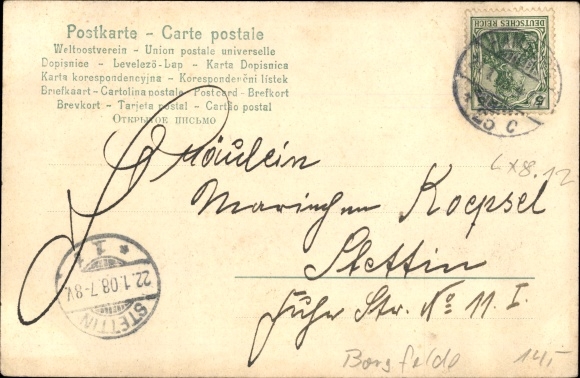 Postkarte - Carte postale
Weltpostverein - Union postale universelle
Dopisnice - Levelező-Lap - Karta Dopisnica
Karta korespondencyjna - Korespondenčni listek
Briefkaart - Cartolina postale - Postcard - Brefkort
Brevkort - Tarjeta postal - Cartão postal
Открытое письмо
DEUTSCHES REICH
5
Fräulein
Mariechen Koepsel
Stettin
Fuhr Str. No 11. I.
* 1 *
22.1.08.7-8V.
STETTIN
Borgfelde
14,-